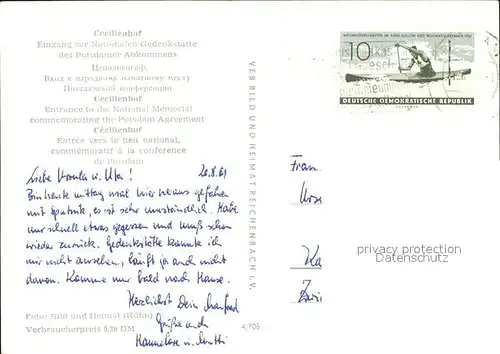 Cecilienhof
Eingang zur Nationalen Gedenkstätte
des Potsdamer Abkommens
Цецилиенгоф,
Вход к народному памятному месту
Потсдамской конференции
Cecilienhof
Entrance to the National Memorial
commemorating the Potsdam Agreement
Cécilienhof
Entrée vers le lieu national,
commémoratif à la conférence
de Potsdam
VEB BILD UND HEIMAT REICHENBACH I. V.
10
DEUTSCHE DEMOKRATISCHE REPUBLIK
20.8.61
Liebe Ursula u. Uta!
Bin heute mittag mal hier heraus gefahren
mit Sputnik, es ist sehr umständlich. Habe
nur schnell etwas gegessen und muß schon
wieder zurück. Gedenkstätte konnte ich
mir nicht ansehen, läuft ja auch nicht
davon. Komme nun bald nach Hause.
Herzlichst Dein Manfred
Grüße auch
Hannelore u. Mutti
Foto: Bild und Heimat (Kühn)
Verbraucherpreis 0.20 DM
4/705
Frau
Urs
Ka
Zwi
privacy protection